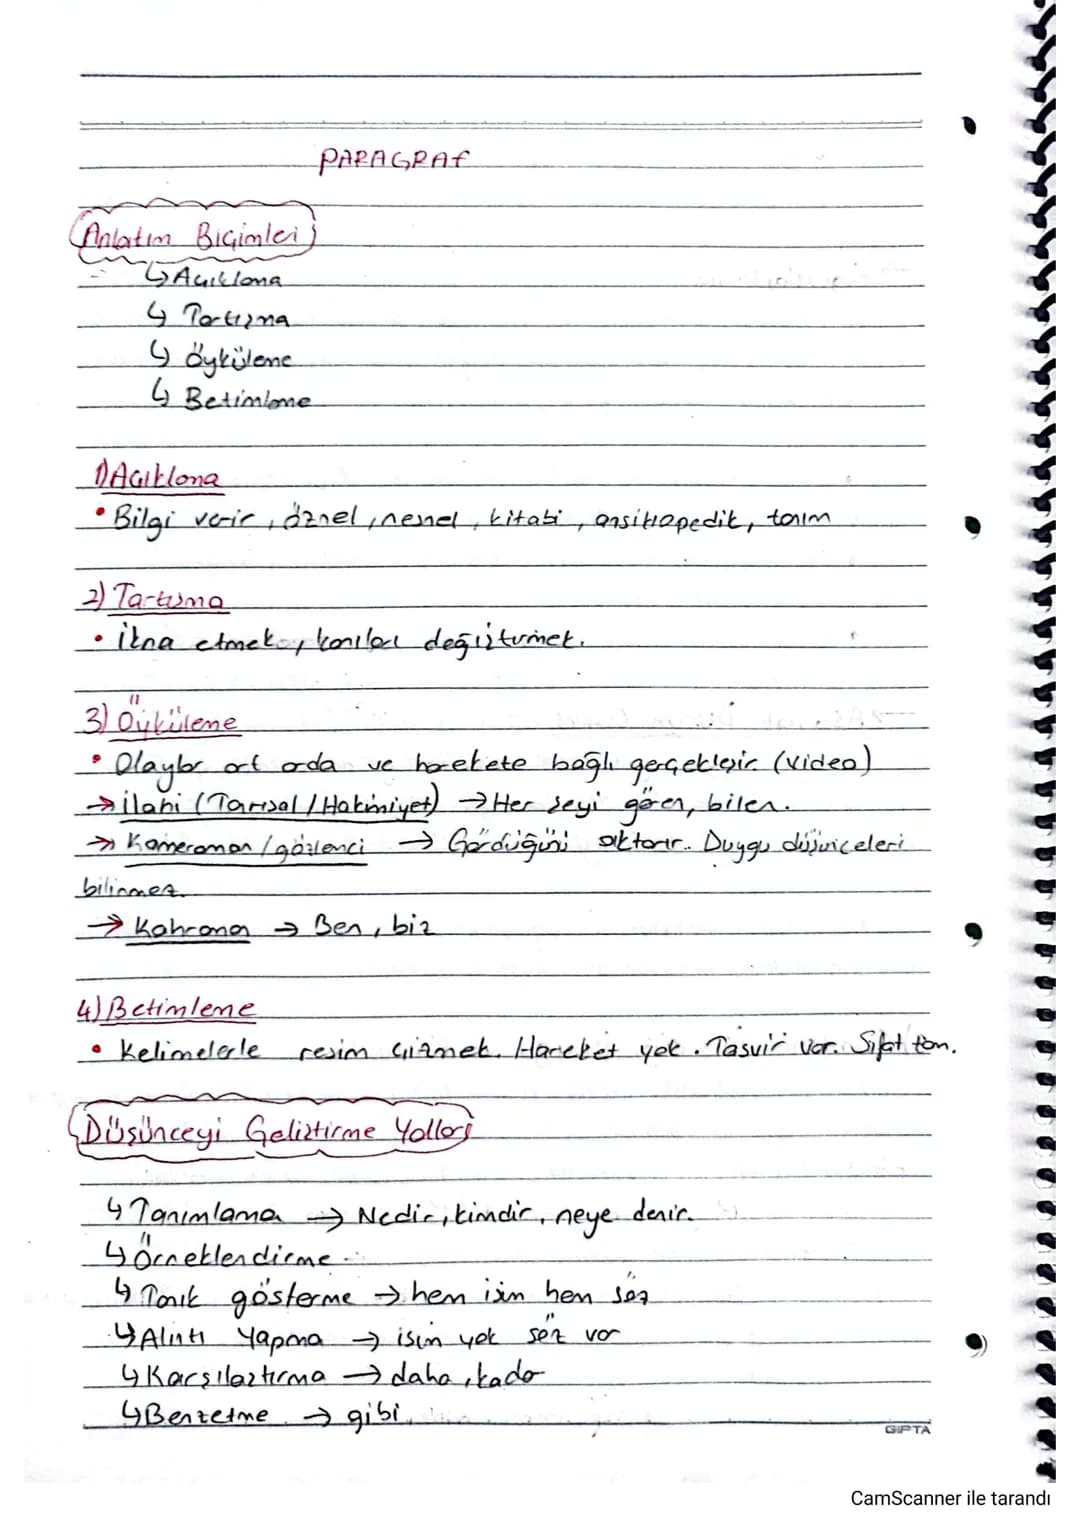 PARAGRAF
Anlatım Biçimleri
↳ Açıklama
↳ Tartışma
↳ Öyküleme
↳ Betimleme
1) Açıklama
• Bilgi verir, öznel, nesnel, kitabi, ansiklopedik, tanım
2) Tartışma
• İkna etmek, kanıları değiştirmek.
3) Öyküleme
• Olaylar art arda ve harekete bağlı gerçekleşir. (video)
→ İlahi (Tanrısal / Hakimiyet) → Her şeyi gören, bilen.
→ Kameraman / gözlemci → Gördüğünü aktarır. Duygu düşünceleri
bilinmez.
→ Kahraman → Ben, biz
4) Betimleme
• Kelimelerle resim çizmek. Hareket yok. Tasvir var. Sıfat tam.
Düşünceyi Geliştirme Yolları
↳ Tanımlama → Nedir, kimdir, neye denir.
↳ Örneklendirme
↳ Tanık gösterme → hem isim hem söz
↳ Alıntı Yapma → isim yok söz var
↳ Karşılaştırma → daha, kadar
↳ Benzetme → gibi
GIPTA
CamScanner ile tarandı